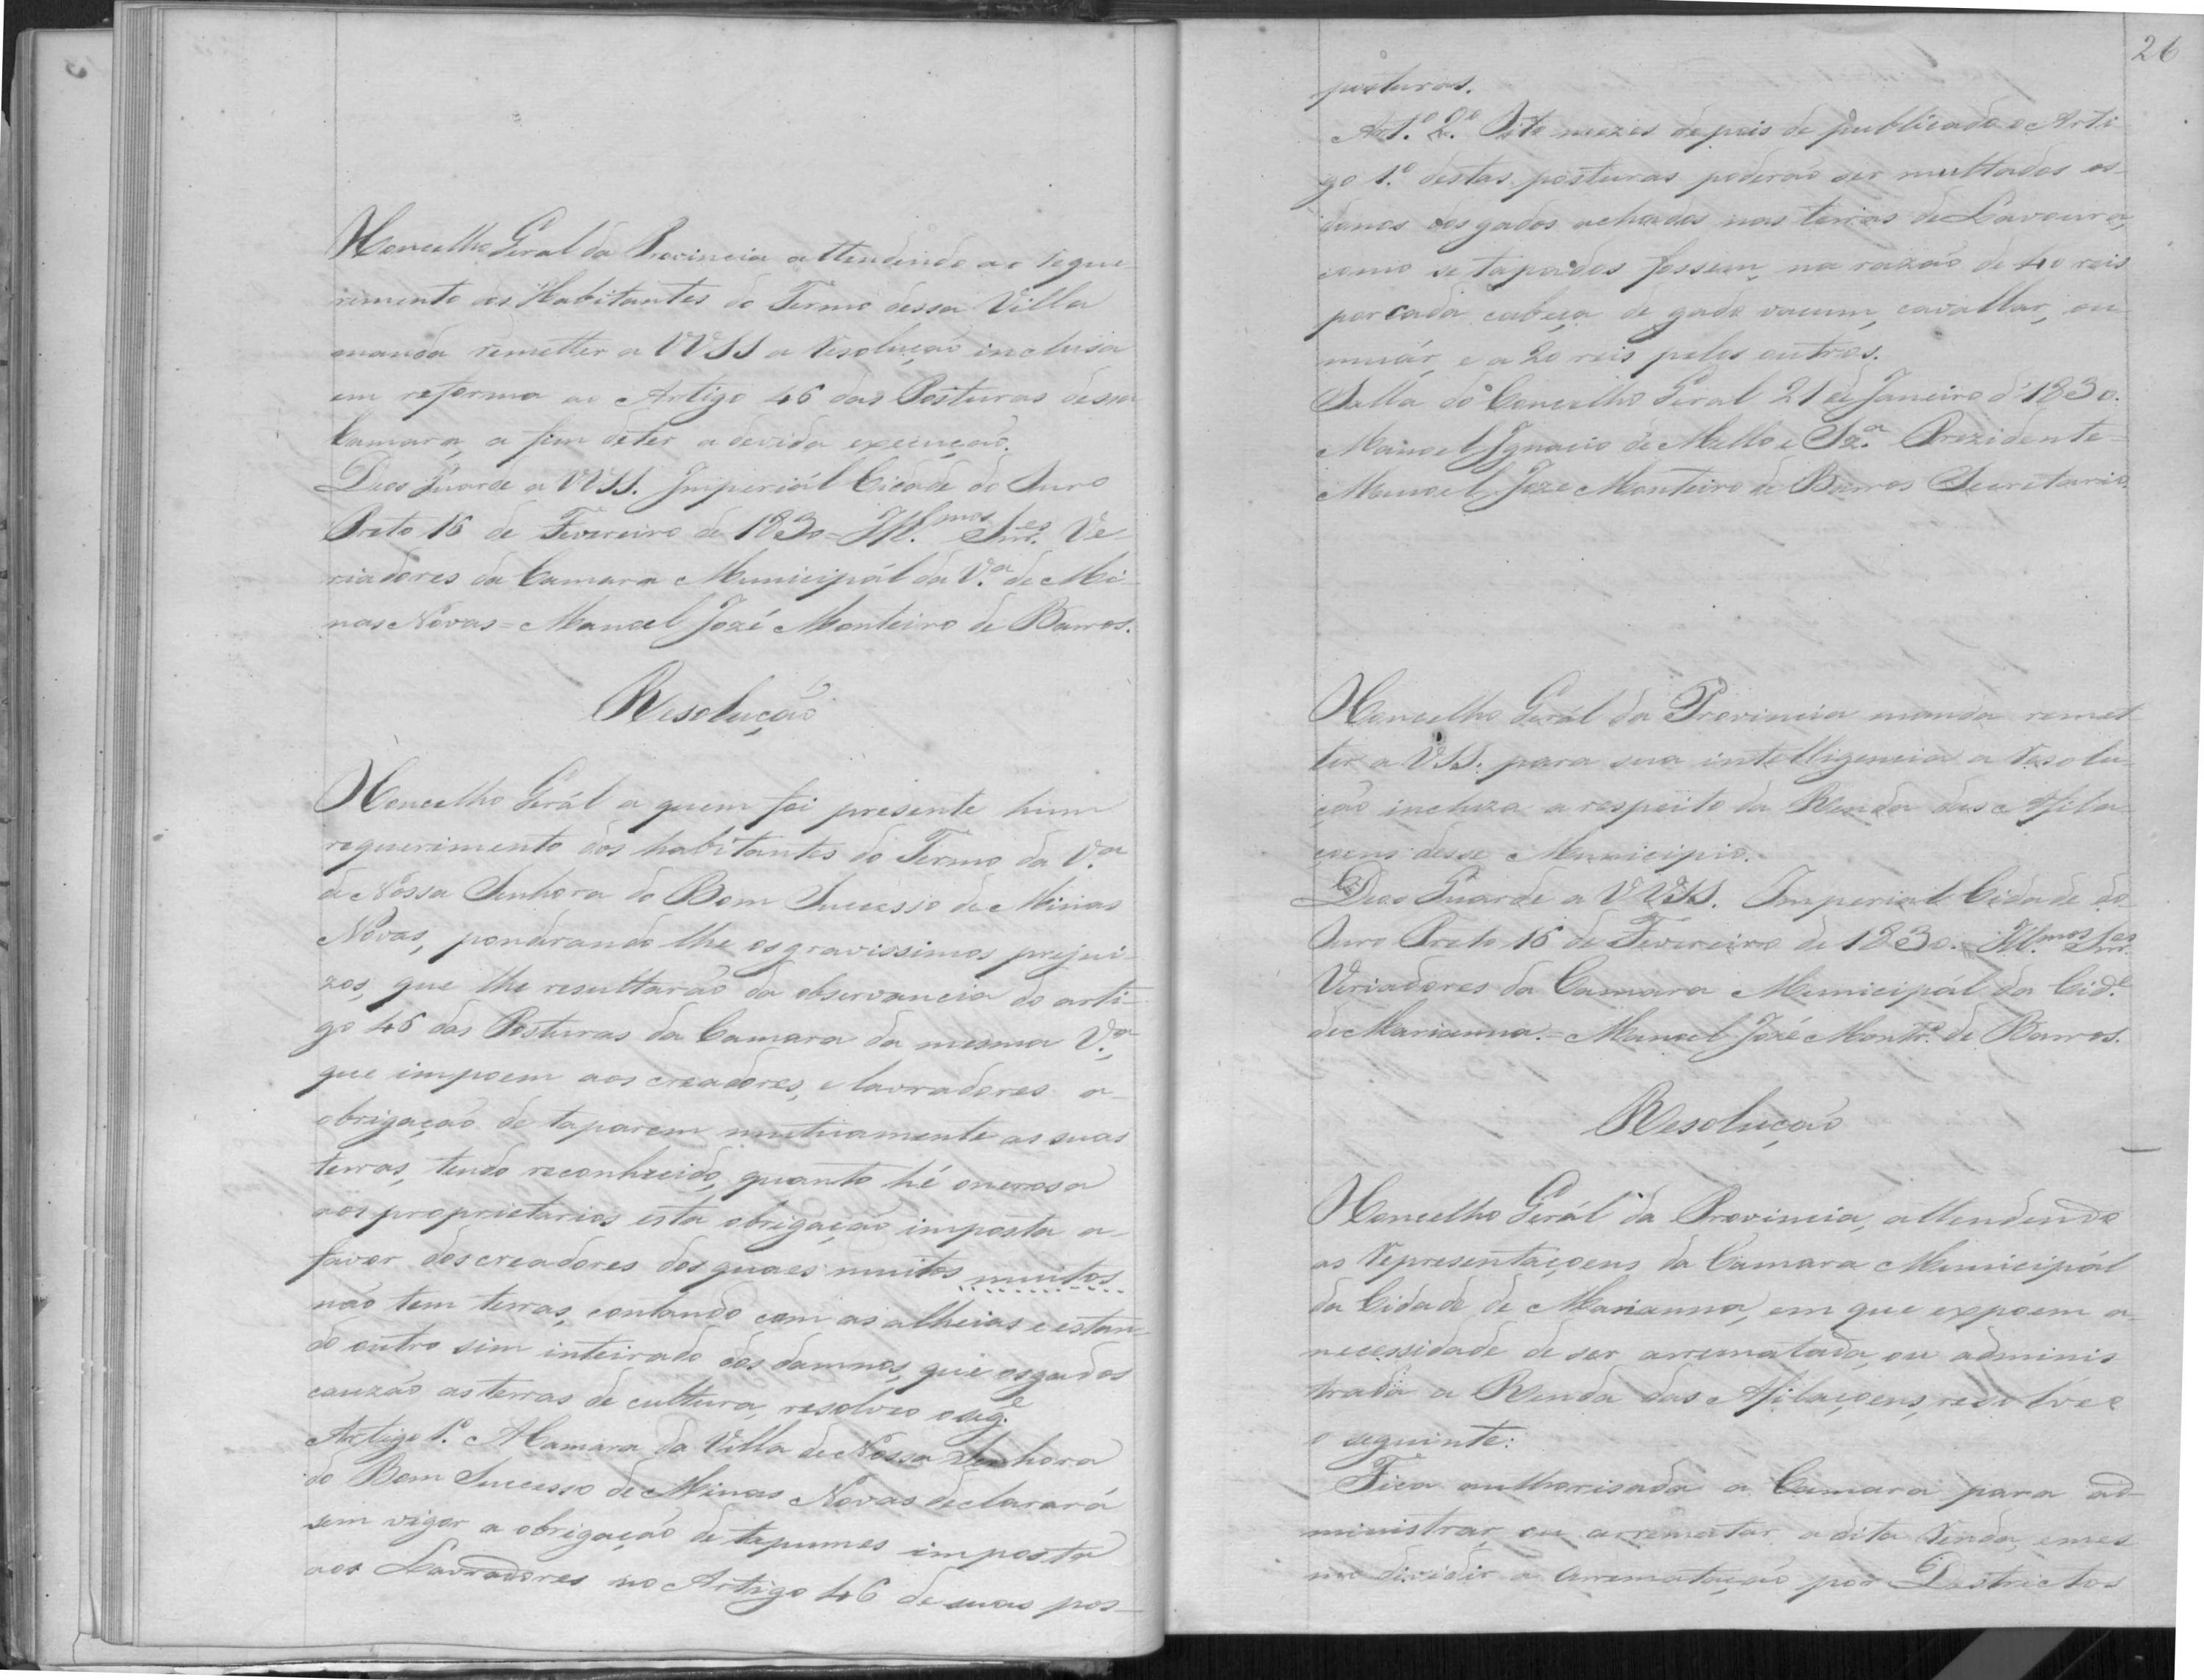 O Concelho Geral da Provincia attendendo ao reque-
rimento dos Habitantes do Termo dessa Villa
manda remetter a VVSS a Resolução inclusa
em reforma ao Artigo 46 das Posturas dessa
Camara, a fim de ter a devida execução.
Deos Guarde a VVSS. Imperiál Cidade do Ouro
Preto 16 de Fevereiro de 1830 = Ill.mos Snr.es Ve-
riadores da Camara Municipál da V.a de Mi-
nas Novas = Manoel Jozé Monteiro de Barros.
Resolução
O Concelho Gerál a quem foi presente hum
requerimento dos habitantes do Termo da V.a
de Nossa Senhora do Bom Sucesso de Minas
Novas, ponderando lhe os gravissimos prejui-
zos, que lhe resultarão da observancia do arti-
go 46 das Posturas da Camara da mesma V.a
que impoem aos creadores, e lavradores a
obrigação de taparem mutuamente as suas
terras, tendo reconhecido, quanto hé onerosa
aos proprietarios esta obrigação imposta a
favor dos creadores dos quaes muitos muitos
não tem terras, contando com as alheias e estan-
do outro sim inteirado dos damnos, que os gados
cauzão as terras de cultura, resolveo o seg.e
Artigo 1.o A Camara da Villa de Nossa Senhora
do Bom Successo de Minas Novas declarará
sem vigor a obrigação de tapumes imposta
aos Lavradores no Artigo 46 de suas pos-
26
posturas.
Art.o 2.o Oito mezes depois de publicado o Arti
go 1.o destas posturas poderão ser multados os
donos dos gados achados nas terras de Lavoura,
como se tapados fossem, na razão de 40 reis
por cada cabeça de gado vacum, cavallar, ou
muár, e a 20 reis pelos outros.
Salla do Concelho Geral 21 de Janeiro d'1830.
Manoel Ignacio de Mello e Sz.a Prezidente =
Manoel Joze Monteiro de Barros Secretario.
O Concelho Gerál da Provincia manda remet
ter a VSS. para sua intelligencia a Resolu
ção incluza a respeito da Renda das Afila
çoens desse Municipio.
Deos Guarde a VVSS. Imperial Cidade do
Ouro Preto 16 de Fevereiro de 1830. = Ill.mos Snr.es
Veriadores da Camara Municipál da Cid.e
de Marianna. = Manoel Jozé Montr.o de Barros.
Resolução
O Concelho Gerál da Provincia, attendendo
as Representaçoens da Camara Municipál
da Cidade de Marianna, em que expoem a
necessidade de ser arrematada, ou adminis
trada a Renda das Afilaçoens, resolveo
o seguinte:
Fica authorisada a Camara para ad-
ministrar, ou arrematar a dita Renda, e mes
mo dividir a arrematação por Destrictos